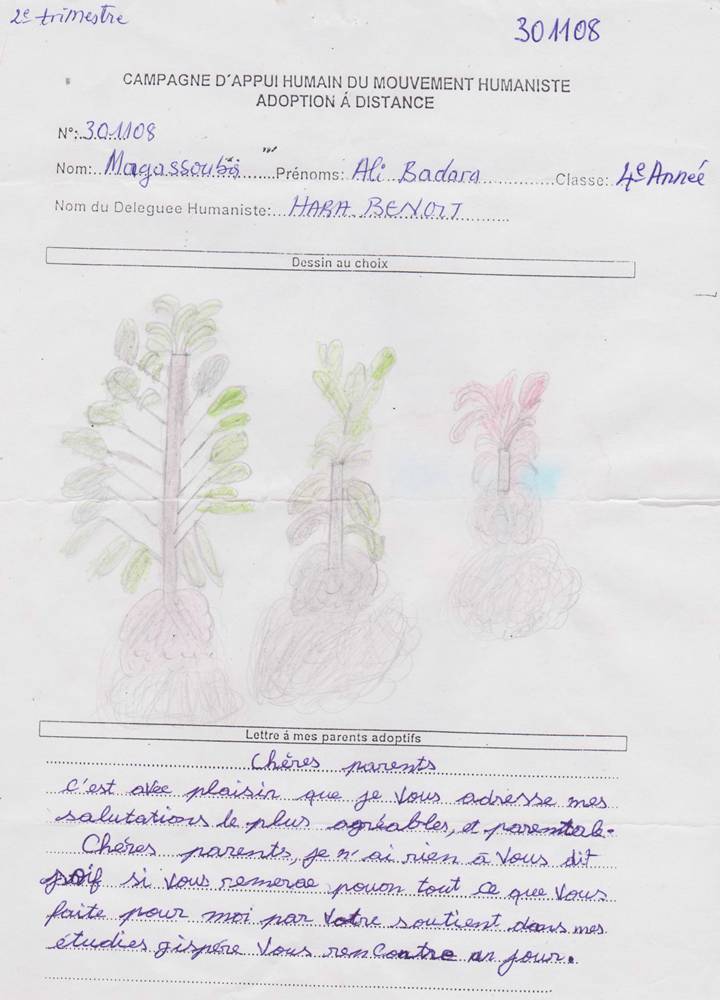 2e trimestre
301108
CAMPAGNE D'APPUI HUMAIN DU MOUVEMENT HUMANISTE
ADOPTION Á DISTANCE
N°: 301108
Nom: Magassouba Prénoms: Ali Badara Classe: 4e Année
Nom du Deleguee Humaniste: HARA BENOIT
Dessin au choix
Lettre á mes parents adoptifs
Chères parents
C'est avec plaisir que je vous adresse mes
salutations le plus agréables, et parentale.
Chères parents, je n'ai rien à vous dit
soif si vous remerae pouon tout ce que vous
faite pour moi par votre soutient dans mes
étudies jispère vous rencontre un jour.